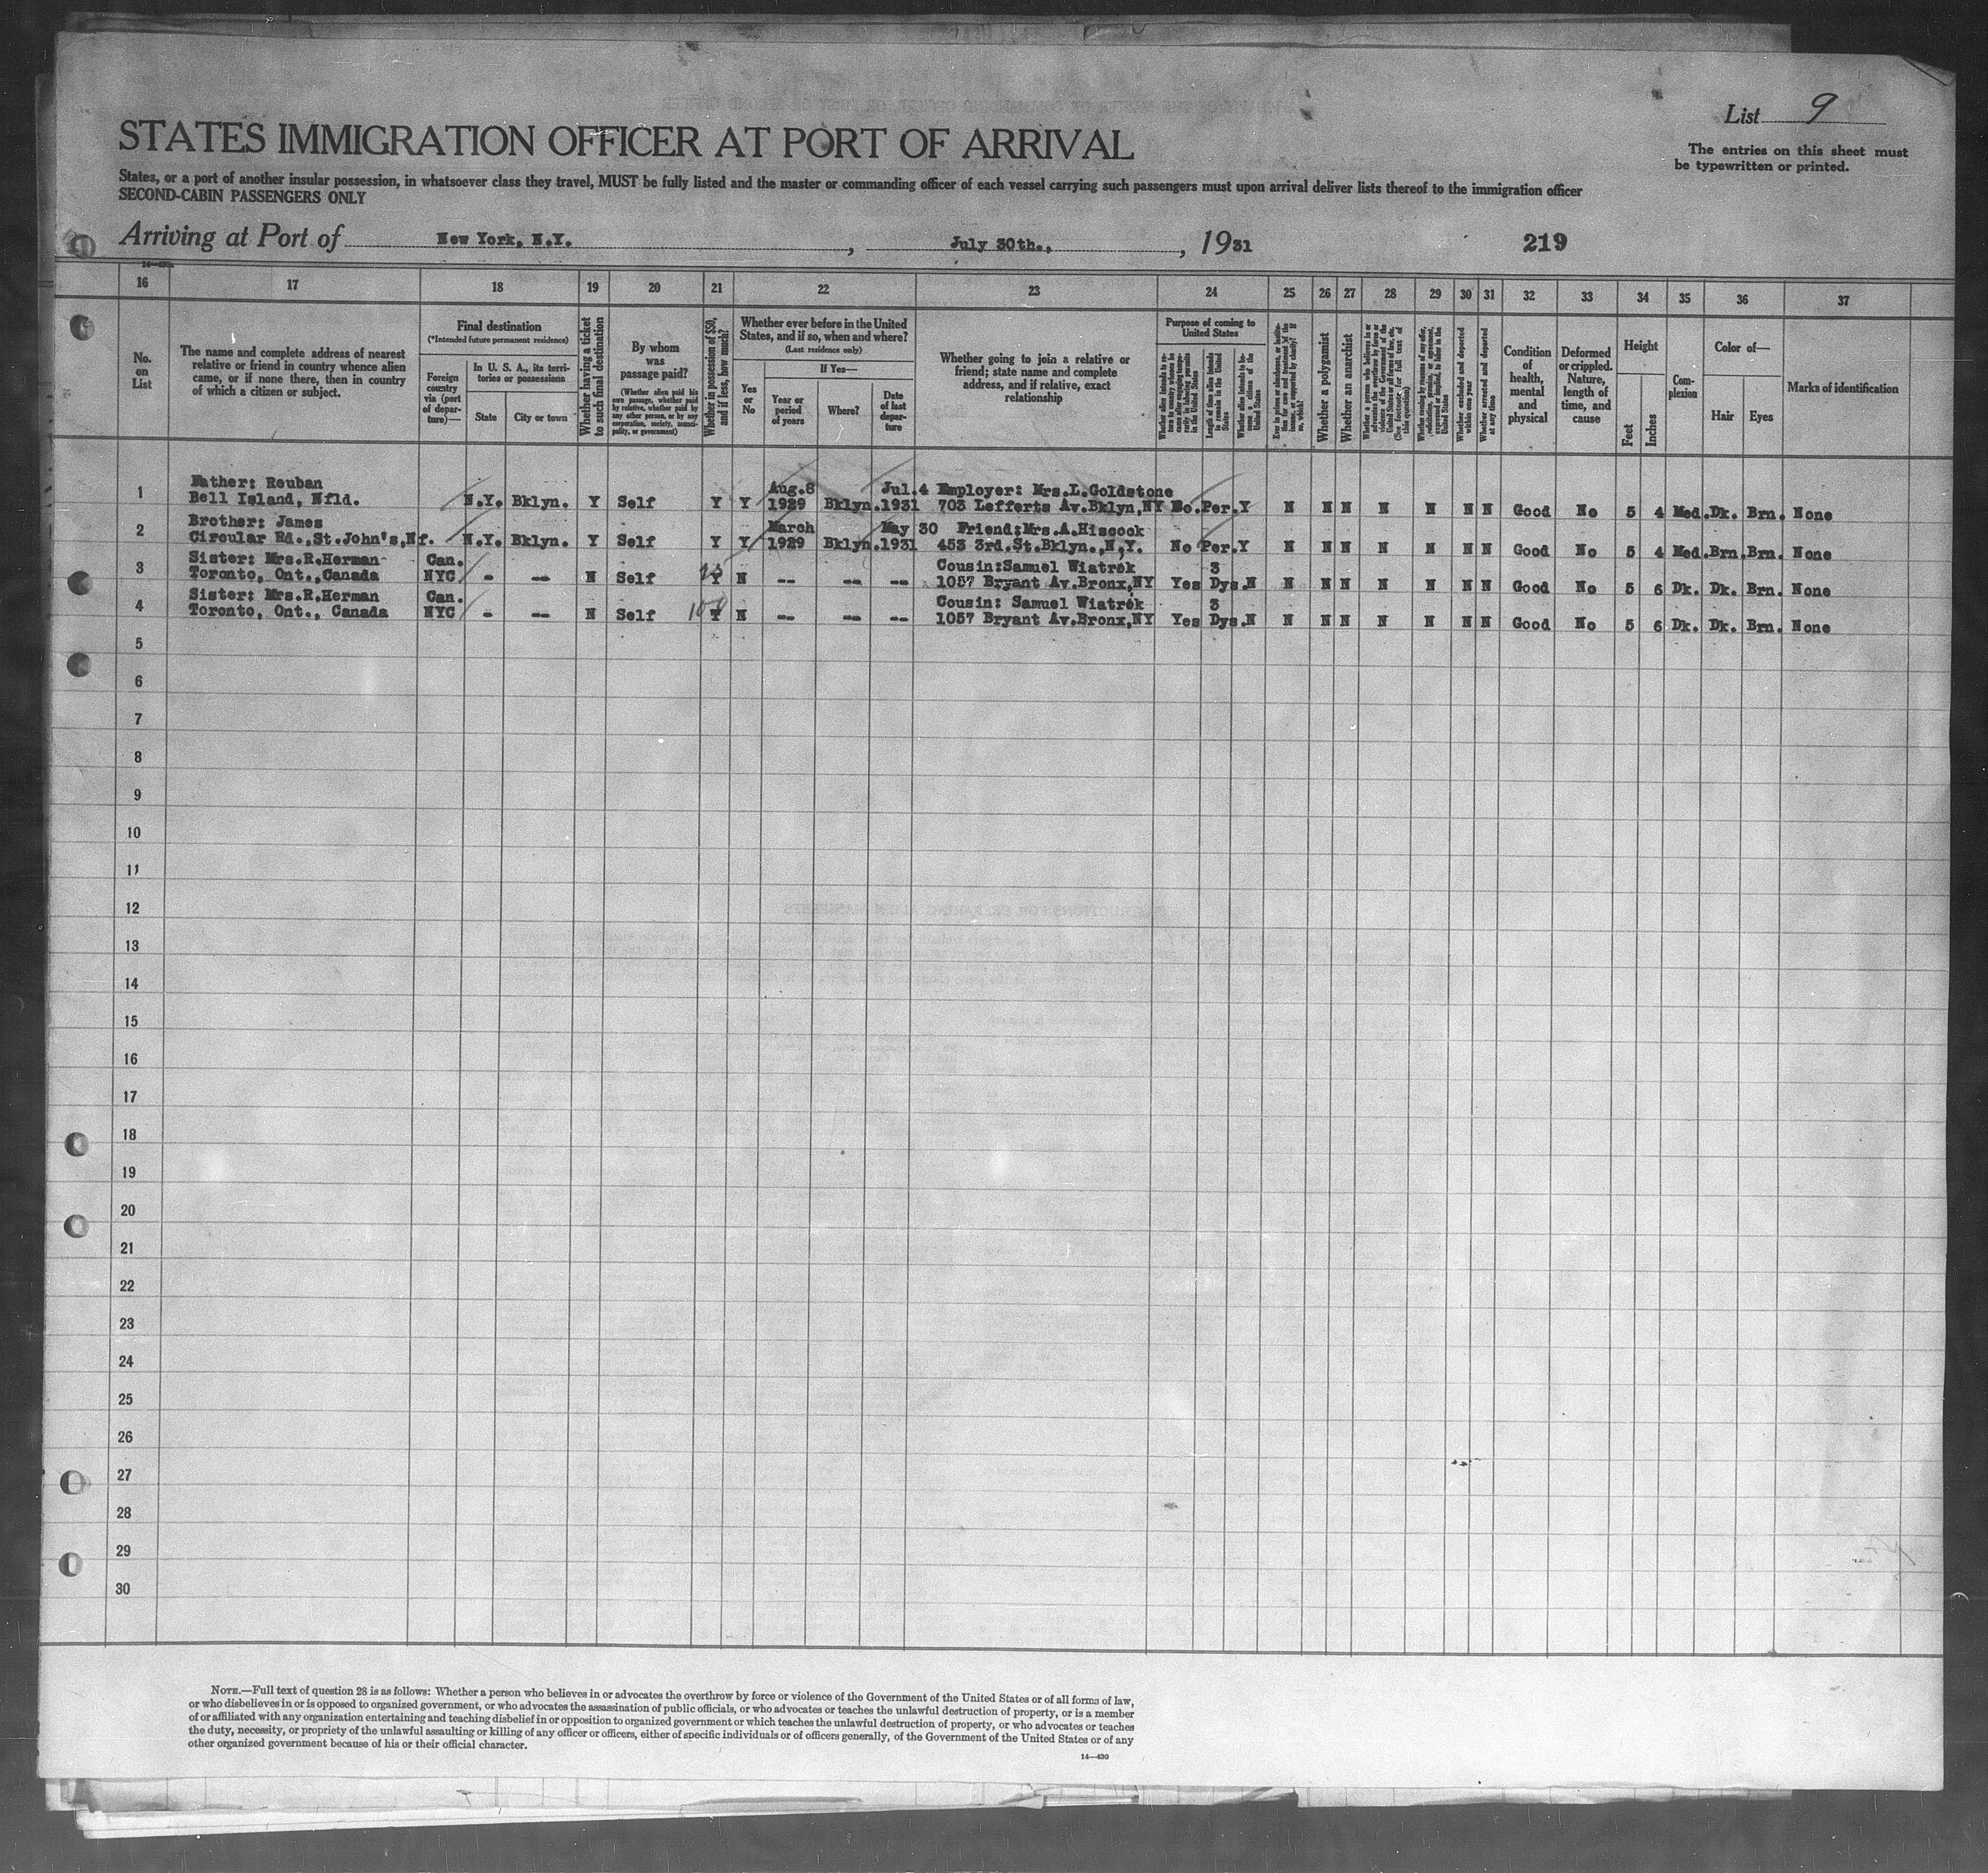 List 9
The entries on this sheet must
be typewritten or printed.
STATES IMMIGRATION OFFICER AT PORT OF ARRIVAL
States, or a port of another insular possession, in whatsoever class they travel, MUST be fully listed and the master or commanding officer of each vessel carrying such passengers must upon arrival deliver lists thereof to the immigration officer
SECOND-CABIN PASSENGERS ONLY
Arriving at Port of New York, N.Y. , July 30th., , 1931 219
16 17 18 19 20 21 22 23 24 25 26 27 28 29 30 31 32 33 34 35 36 37
No.
on
List
The name and complete address of nearest
relative or friend in country whence alien
came, or if none there, then in country
of which a citizen or subject.
Final destination
(*Intended future permanent residence)
Foreign
country
via (port
of depar-
ture)—
In U. S. A., its terri-
tories or possessions
State
City or town
Whether having a ticket
to such final destination
By whom
was
passage paid?
(Whether alien paid his
own passage, whether paid
by relative, whether paid by
any other person, or by any
corporation, society, munici-
pality, or government)
Whether in possession of $50,
and if less, how much?
Whether ever before in the United
States, and if so, when and where?
(Last residence only)
Yes
or
No
If Yes—
Year or
period
of years
Where?
Date
of last
depar-
ture
Whether going to join a relative or
friend; state name and complete
address, and if relative, exact
relationship
Purpose of coming to
United States
Length of time alien intends
to remain in the United
States
Whether alien intends to be-
come a citizen of the
United States
Whether a polygamist
Whether an anarchist
Whether excluded and deported
within one year
Whether arrested and deported
at any time
Condition
of
health,
mental
and
physical
Deformed
or crippled.
Nature,
length of
time, and
cause
Height
Feet
Inches
Com-
plexion
Color of—
Hair
Eyes
Marks of identification
Father: Reuban Aug.8 Jul.4 Employer: Mrs.L.Goldstone
1 Bell Island, Nfld. N.Y. Bklyn. Y Self Y Y 1929 Bklyn. 1931 703 Lefferts Av.Bklyn,NY No. Per. Y N N N N N N N Good No 5 4 Med. Dk. Brn. None
Brother: James March May 30 Friend:Mrs.A.Hiscock
2 Circular Rd.,St.John's,Nf. N.Y. Bklyn. Y Self Y Y 1929 Bklyn. 1931 453 3rd.St.Bklyn.,N.Y. No Per. Y N N N N N N N Good No 5 4 Med. Brn. Brn. None
Sister: Mrs.R.Herman Can. Cousin:Samuel Wiatrek 3
3 Toronto, Ont.,Canada NYC - -- N Self Y N -- -- -- 1057 Bryant Av.Bronx,NY Yes Dys. N N N N N N N N Good No 5 6 Dk. Dk. Brn. None
Sister: Mrs.R.Herman Can. Cousin: Samuel Wiatrek 3
4 Toronto, Ont., Canada NYC - -- N Self 100 Y N -- -- -- 1057 Bryant Av.Bronx,NY Yes Dys. N N N N N N N N Good No 5 6 Dk. Dk. Brn. None
5
6
7
8
9
10
11
12
13
14
15
16
17
18
19
20
21
22
23
24
25
26
27
28
29
30
NOTE.—Full text of question 28 is as follows: Whether a person who believes in or advocates the overthrow by force or violence of the Government of the United States or of all forms of law,
or who disbelieves in or is opposed to organized government, or who advocates the assassination of public officials, or who advocates or teaches the unlawful destruction of property, or is a member
of or affiliated with any organization entertaining and teaching disbelief in or opposition to organized government or which teaches the unlawful destruction of property, or who advocates or teaches
the duty, necessity, or propriety of the unlawful assaulting or killing of any officer or officers, either of specific individuals or of officers generally, of the Government of the United States or of any
other organized government because of his or their official character.
14—430